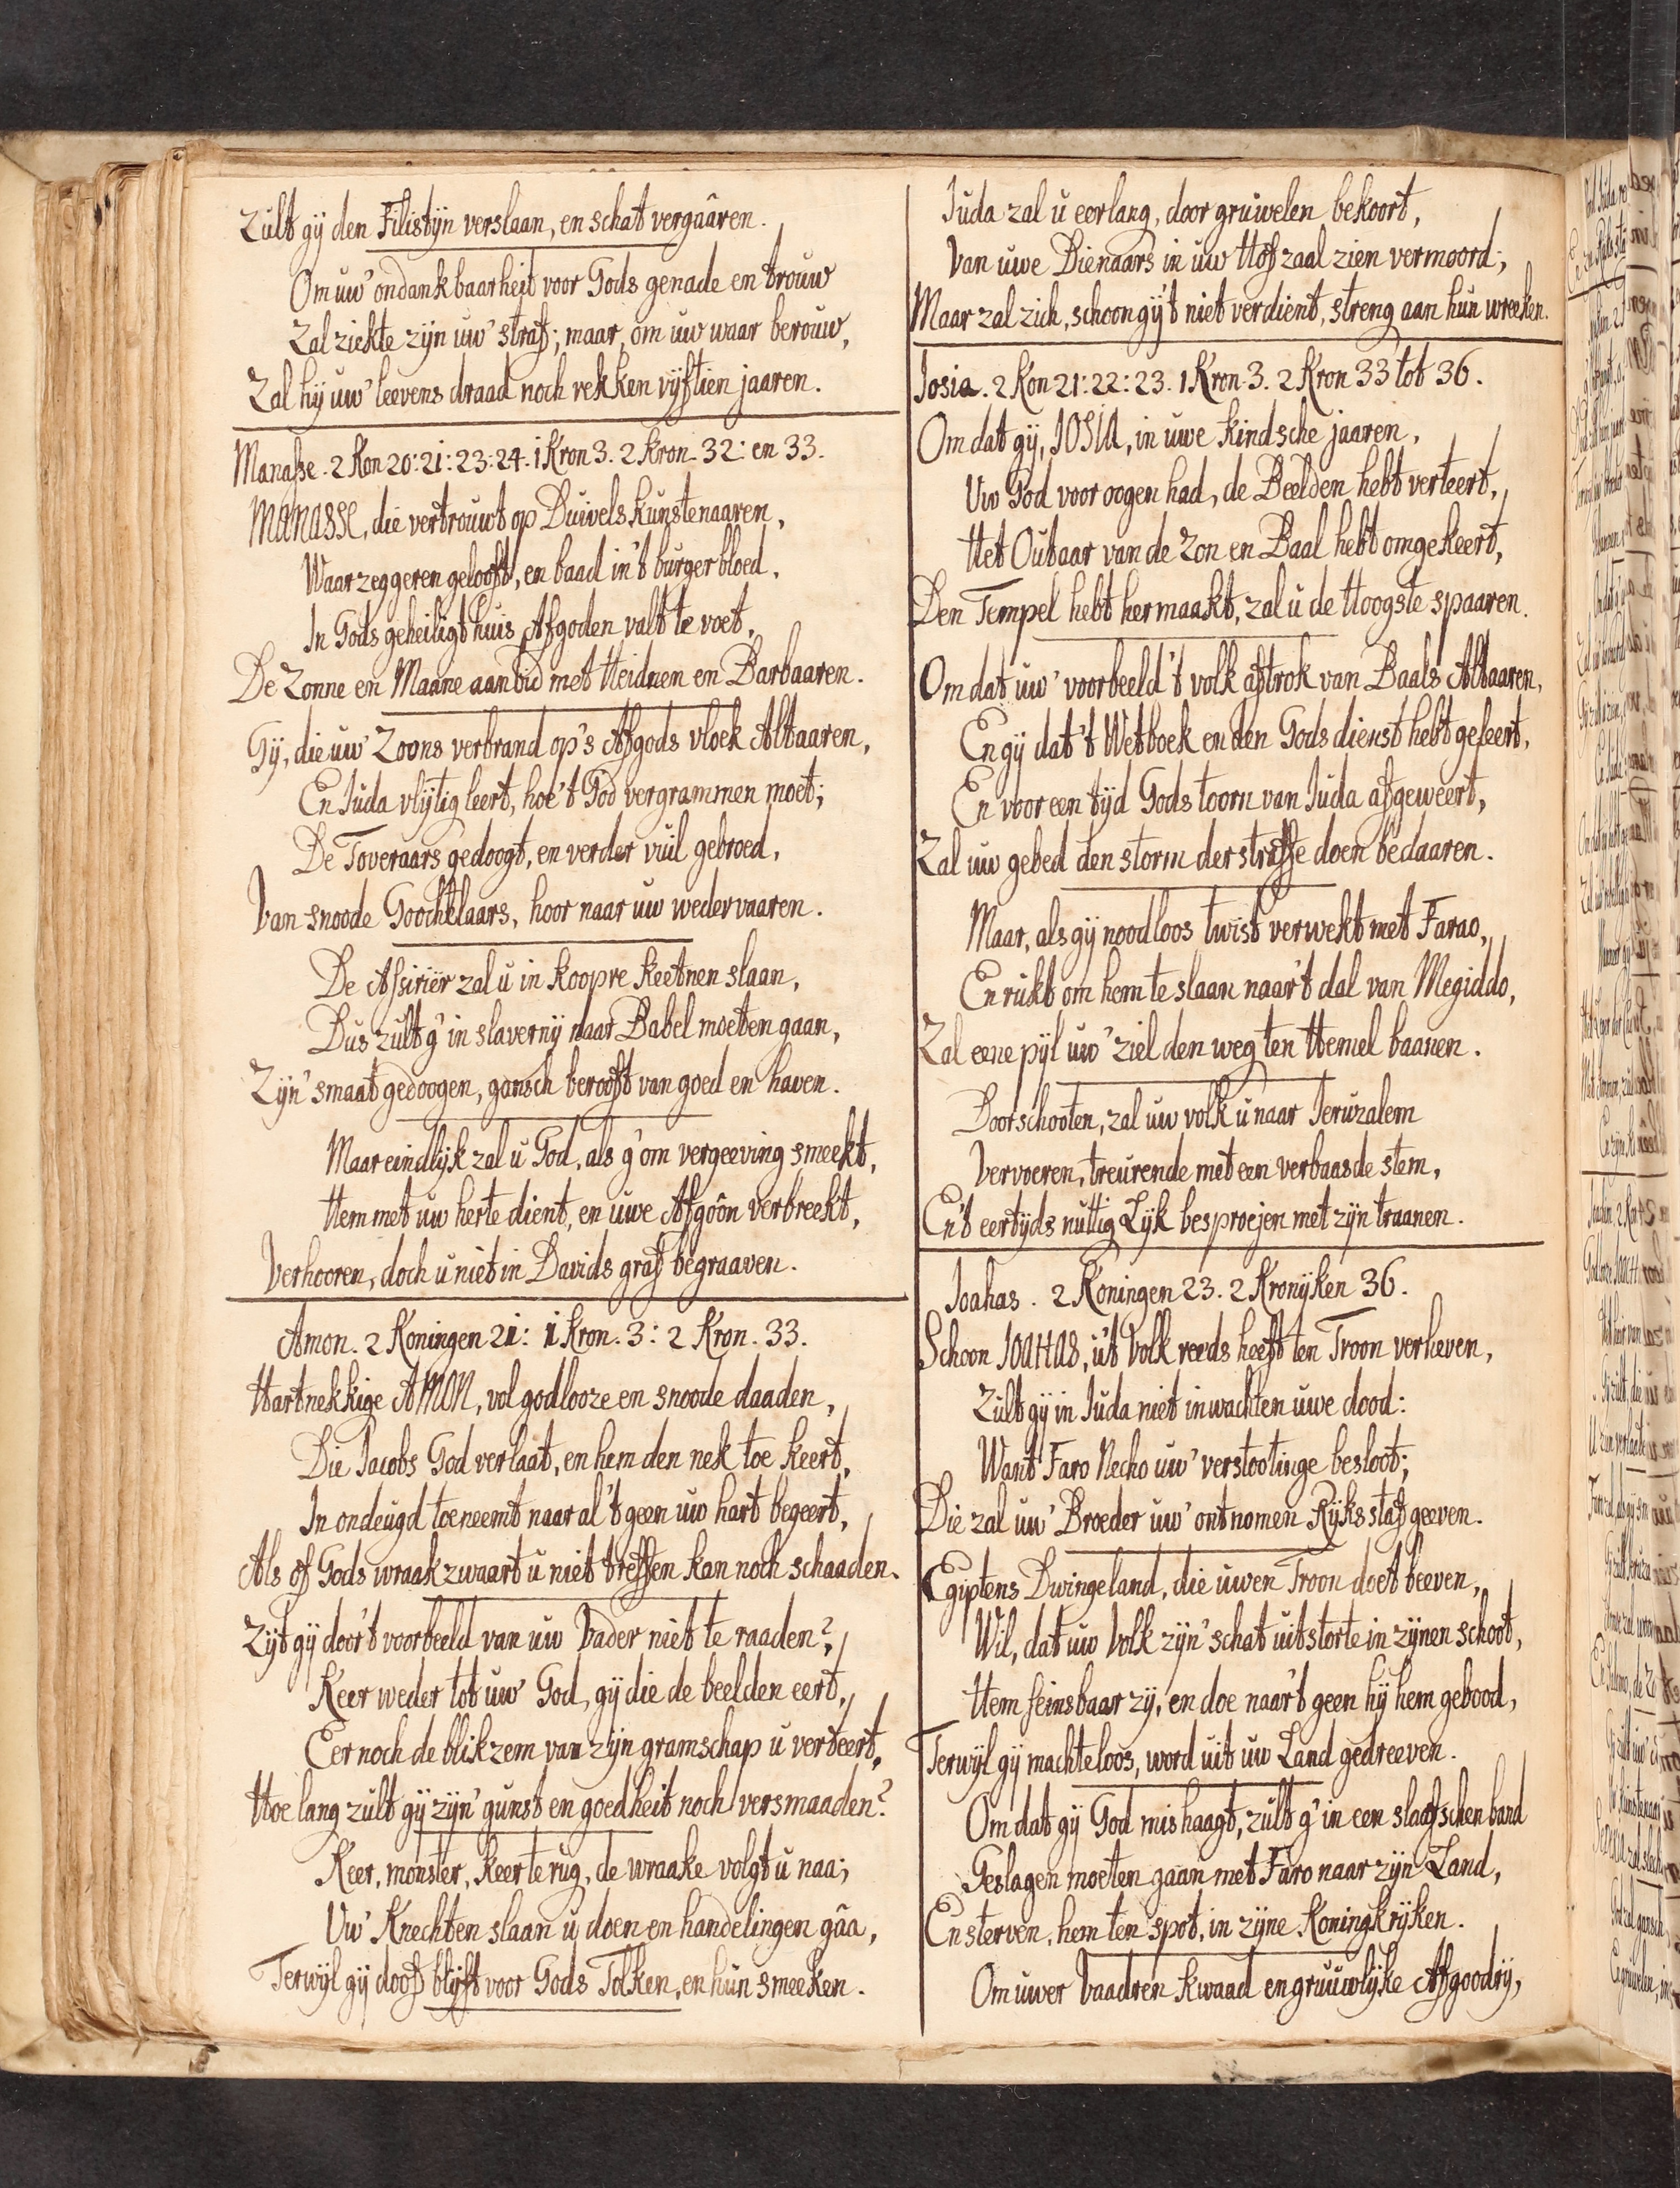 Zult gy den Filistyn verslaan, en schat vergaâren.
Om uw' ondankbaarheit voor Gods genade en trouw
Zal ziekte zyn uw' straf; maar, om uw waar berouw,
Zal hy uw' leevens draad noch rekken vyftien jaaren.
Manasse. 2 Kon 20: 21: 23: 24. 1 Kron 3. 2 Kron. 32: en 33.
MANASSE, die vertrouwt op Duivelskunstenaaren,
Waarzeggeren gelooft, en baad in't burgerbloed,
In Gods geheiligt huis Afgoden valt te voet,
De Zonne en Maane aanbid met Heidnen en Barbaaren.
Gy, die uw' Zoons verbrand op's Afgods vloek Altaaren,
En Juda vlytig leert, hoe't God vergrammen moet;
De Toveraars gedoogt, en verder vuil gebroed,
Van snoode Goochklaars, hoor naar uw wedervaaren.
De Assiriër zal u in koopre keetnen slaan,
Dus zult g' in slaverny naar Babel moeten gaan,
Zyn' smaat gedoogen, gansch berooft van goed en haven.
Maar eindlyk zal u God, als g' om vergeeving smeekt,
Hem met uw herte dient, en uwe Afgôon verbreekt,
Verhooren, doch u niet in Davids graf begraaven.
Amon. 2 Koningen 21: 1 Kron. 3: 2 Kron. 33.
Hartnekkige AMON, vol godlooze en snoode daaden,
Die Jacobs God verlaat, en hem den nek toe keert,
In ondeugd toeneemt naar al't geen uw hart begeert,
Als of Gods wraakzwaart u niet treffen kan noch schaaden.
Zyt gy door't voorbeeld van uw Vader niet te raaden?
Keer weder tot uw' God, gy die de beelden eert,
Eer noch de blikzem van zyn gramschap u verteert,
Hoe lang zult gy zyn' gunst en goedheit noch versmaaden?
Keer, monster, keer te rug, de wraake volgt u naa;
Uw' Knechten slaan u doen en handelingen gâa,
Terwyl gy doof blyft voor Gods Tolken, en hun smeeken.
Juda zal u eerlang, door gruwelen bekoort,
Van uwe Dienaars in uw Hofzaal zien vermoord;
Maar zal zich, schoon gy't niet verdient, streng aan hun wreeken.
Josia. 2 Kon 21: 22: 23. 1 Kron 3. 2 Kron 33 tot 36.
Om dat gy, JOSIA, in uwe kindsche jaaren,
Uw God voor oogen had, de Beelden hebt verteert,
Het Outaar van de Zon en Baal hebt omgekeert,
Den Tempel hebt hermaakt, zal u de Hoogste spaaren.
Om dat uw' voorbeeld't volk aftrok van Baals Altaaren,
En gy dat't Wetboek en den Godsdienst hebt geleert,
En voor een tyd Gods toorn van Juda afgeweert,
Zal uw gebed den storm der straffe doen bedaaren.
Maar, als gy noodloos twist verwekt met Farao,
En rukt om hem te slaan naar't dal van Megiddo,
Zal eene pyl uw' ziel den weg ten Hemel baanen.
Doorschooten, zal uw volk u naar Jeruzalem
Vervoeren, treurende met een verbaasde stem,
En't eertyds nuttig Lyk besproejen met zyn traanen.
Joahas. 2 Koningen 23. 2 Kronyken 36.
Schoon JOAHAS, u't Volk reeds heeft ten Troon verheven,
Zult gy in Juda niet inwachten uwe dood:
Want Faro Necho uw' verstootinge besloot;
Die zal uw' Broeder uw' ontnomen Ryksstaf geeven.
Egiptens Dwingeland, die uwen Troon doet beeven,
Wil, dat uw Volk zyn' schat uitstorte in zynen schoot,
Hem seinsbaar zy, en doe naar't geen hy hem gebood,
Terwyl gy machteloos, word uit uw Land gedreeven.
Om dat gy God mishaagt, zult g' in een slaafschen band
Geslagen moeten gaan met Faro naar zyn Land,
En sterven, hem ten spot, in zyne Koningkryken.
Om uwer Vaadren kwaad en gruuwlyke Afgoodry,